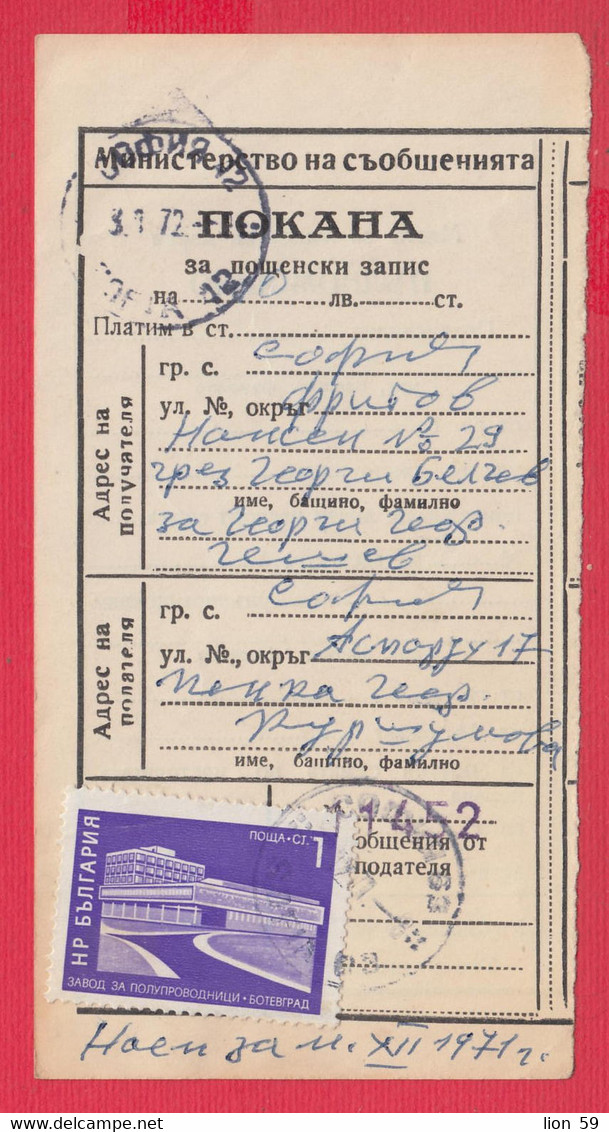 СОФИЯ 12
Министерство на съобщенията
3.1.72
ПОКАНА
за пощенски запис
на 10 лв. ст.
Платим в ст.
Адрес на получателя
гр. с. София
ул. №, окръг Фритов
Нансен № 29
чрез Георги Белчев
име, бащино, фамилно
за Георги Геор.
Гешев
Адрес на подателя
гр. с. София
ул. №, окръг Аспарух 17
Пенка Геор.
Куршумова
име, бащино, фамилно
1452
общения от
подателя
НР БЪЛГАРИЯ
ПОЩА·СТ. 1
ЗАВОД ЗА ПОЛУПРОВОДНИЦИ · БОТЕВГРАД
Наем за м. XII 1971 г.
lion 59